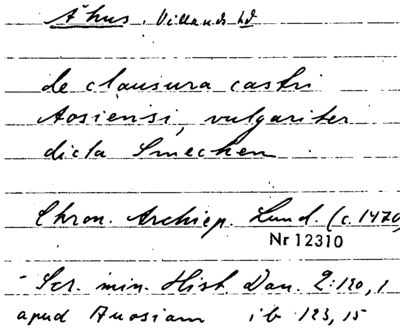 Åhus, Villands hd
de clausura castri
Aosiensi, vulgariter
dicta Smechen
Chron. Archiep. Lund. (c. 1470)
Nr 12310
- Scr. min. Hist Dan. 2:120, 1
apud Auosiam ib 123, 15